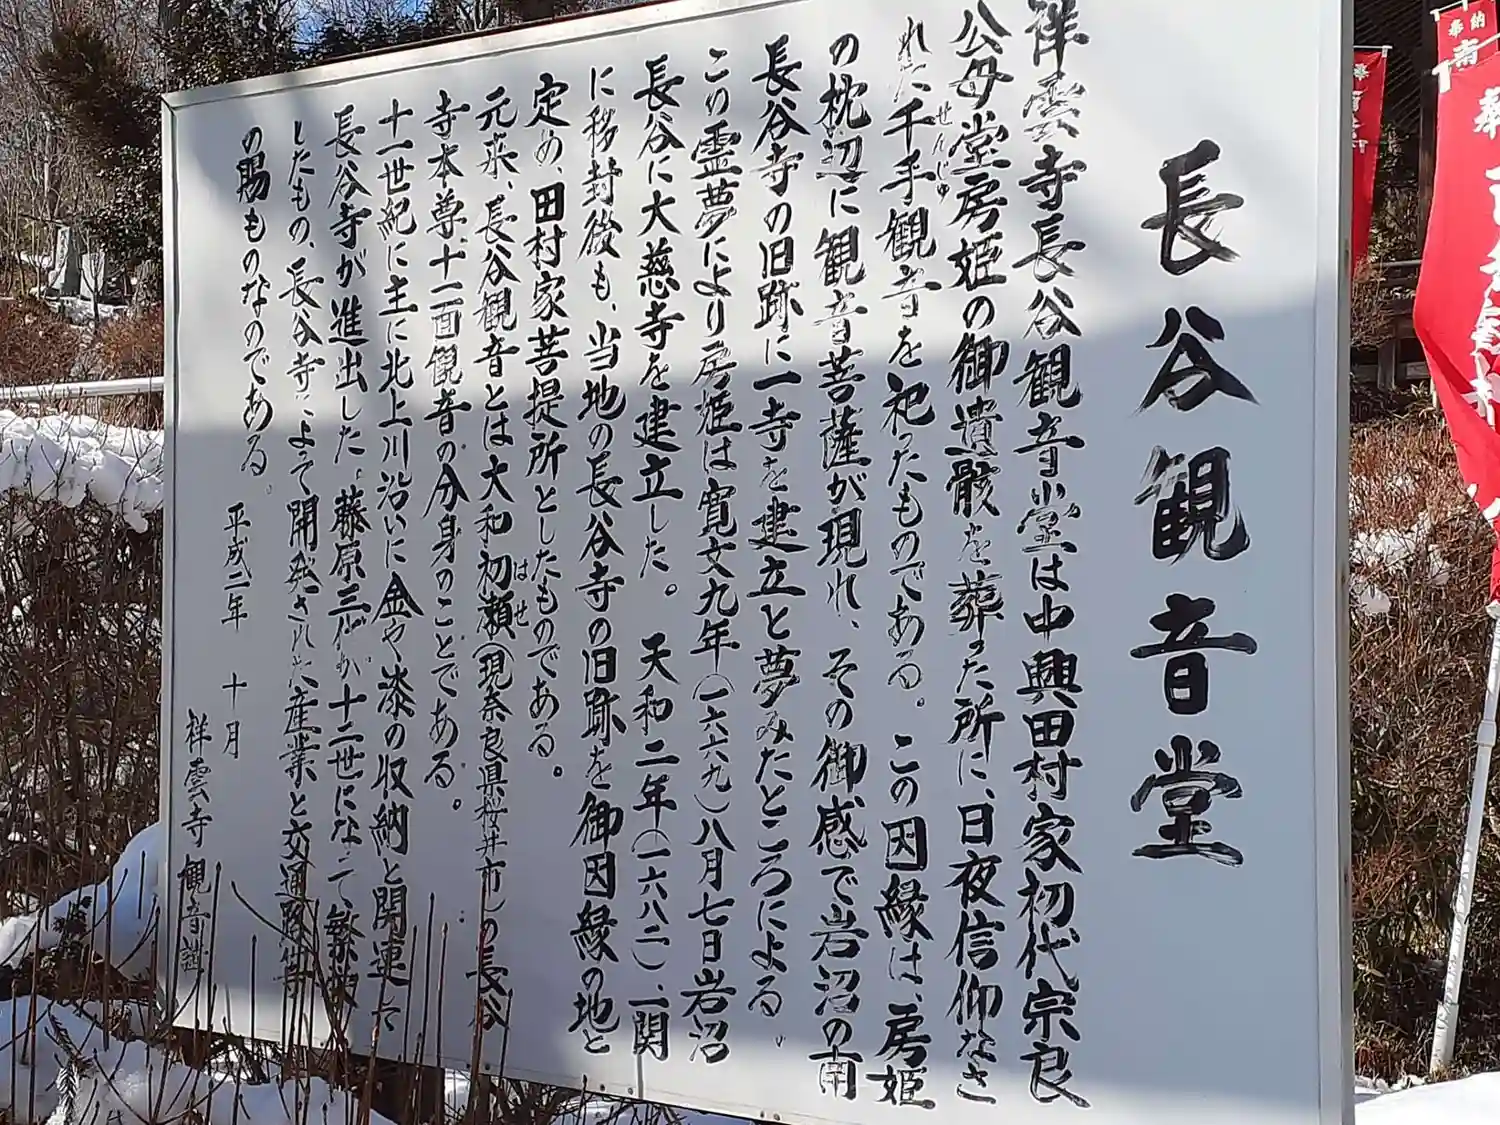 長谷観音堂
祥雲寺長谷観音堂は中興田村家初代宗良
公母堂房姫の御遺骸を葬った所に、日夜信仰なさ
れた千手観音を祀ったものである。この因縁は、房姫
せんじゅ
の枕辺に観音菩薩が現れ、その御感で岩沼の南
長谷寺の旧跡に一寺を建立と夢みたところによる。
この霊夢により房姫は寛文九年(一六六九)八月七日岩沼
長谷に大慈寺を建立した。天和二年(一六八二)、一関
に移封後も、当地の長谷寺の旧跡を御因縁の地と
定め、田村家菩提所としたものである。
元来、長谷観音とは大和初瀬(現奈良県桜井市)の長谷
はせ
寺本尊十一面観音の分身のことである。
十一世紀に主に北上川沿いに金や漆の収納と関連して
長谷寺が進出した。藤原三代が十二世になって
したもの、長谷寺によって開発された産業と交通路
の賜ものなのである。
平成二年 十月
祥雲寺 観音講
奉納
奉